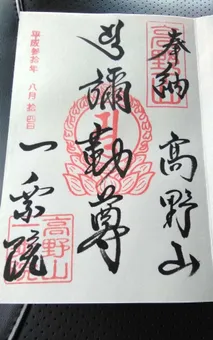 奉納
高野山
高野山
彌勒尊
一乗院
高野山
平成参拾年 八月拾日